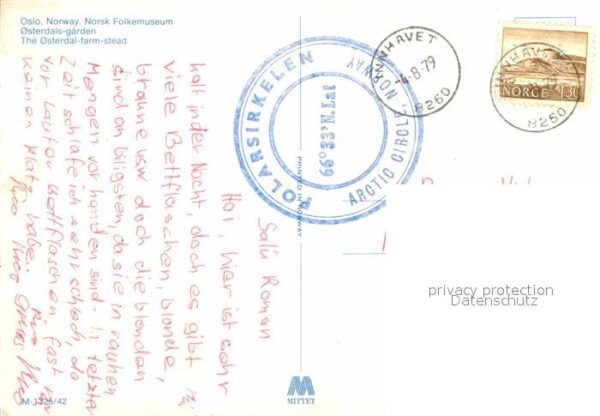 Oslo, Norway. Norsk Folkemuseum
Østerdals-gården
The Østerdal-farm-stead
Salü Roman
Hoi, hier ist sehr
kalt in der Nacht, doch es gibt
viele Bettflaschen, blonde,
braune usw doch die blonden
sind am billigsten, da sie in rauhen
Mengen vorhanden sind. In letzter
Zeit schlafe ich sehr schlecht, da
vor lauter Bettflaschen fast
keinen Platz habe.
POLARSIRKELEN
66° 33' N. LAT
ARCTIC CIRCLE, NORWAY
INNHAVET
-4-8-79
8260
NORGE 1,30
INNHAVET
8260
PRINTED IN NORWAY
privacy protection
Datenschutz
M-1325/42
M
MITTET